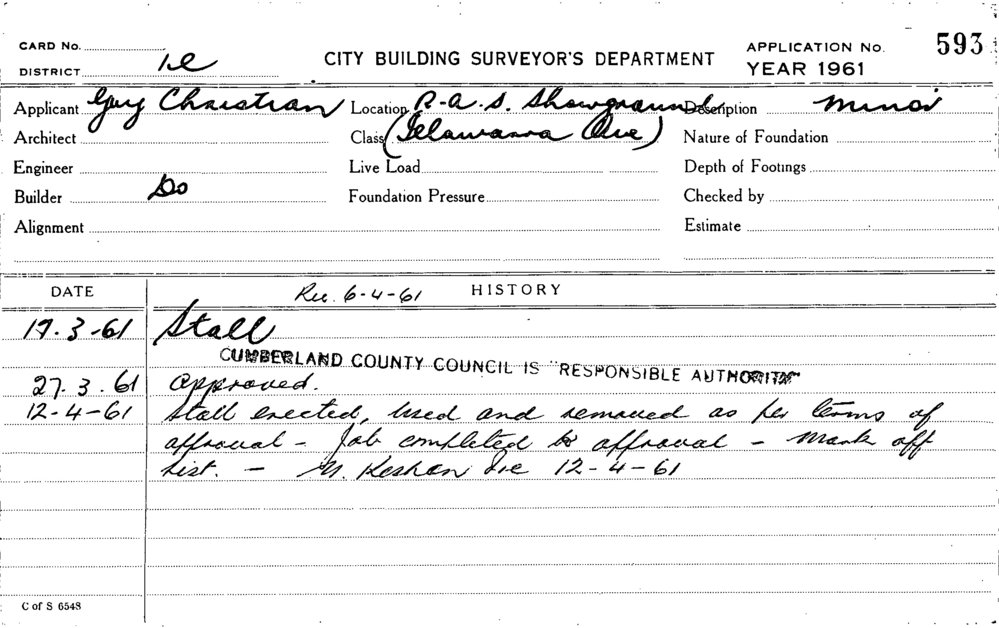 CARD No.
DISTRICT
CITY BUILDING SURVEYOR'S DEPARTMENT
APPLICATION No. 593
YEAR 1961
Applicant Guy Christian Location R.A.S. Showground Description Minor
Architect Class (Illawarra Ave) Nature of Foundation
Engineer Live Load Depth of Footings
Builder Do Foundation Pressure Checked by
Alignment Estimate
DATE Rec. 6-4-61 HISTORY
17.3-61 Stall
CUMBERLAND COUNTY COUNCIL IS "RESPONSIBLE AUTHORITY"
27.3.61 Approved.
12-4-61 Stall erected, used and removed as per terms of
approval - Job completed to approval - Mark off
list. - Keshan 12-4-61
C of S 6548